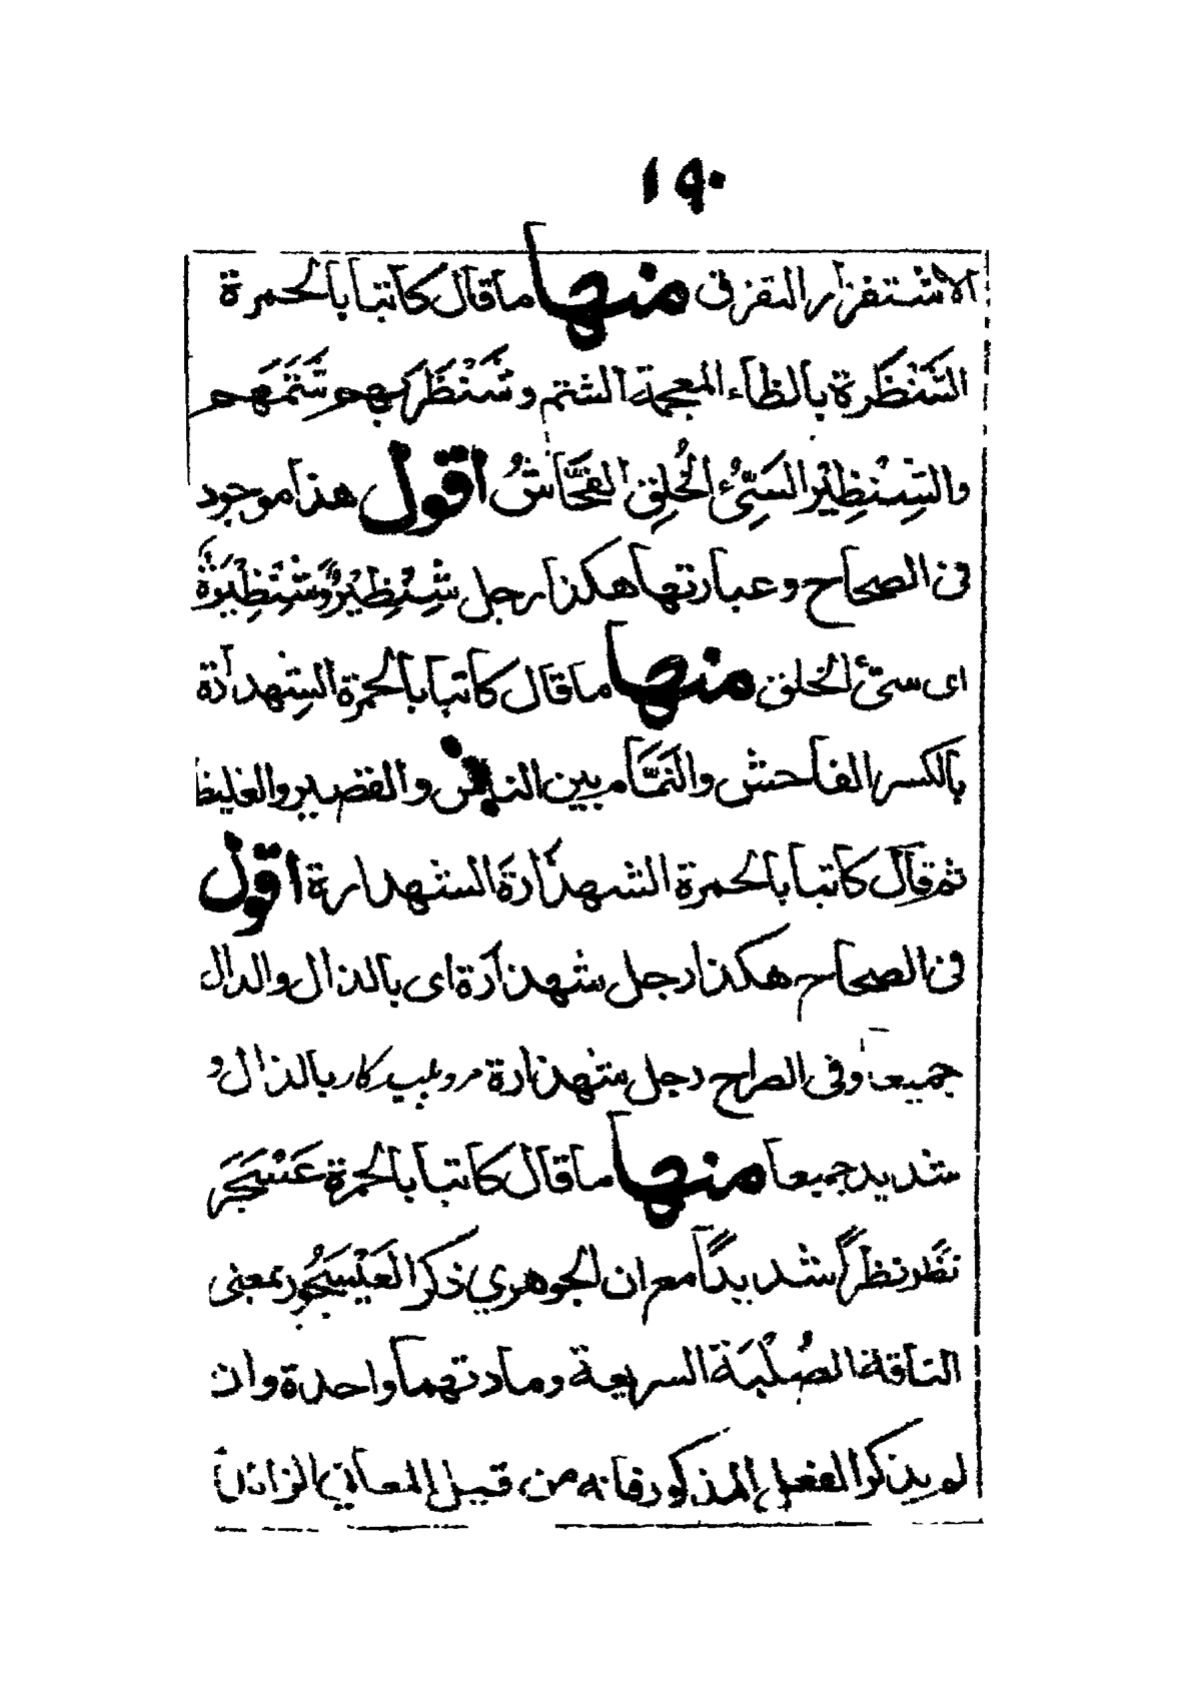 ١٩٠
الاشتفزار التقزفى منها ما قال كاتبا بالحمرة
الشَّنْظَرة بالظاء المعجمة الشتم وشَنْظَر بهم شَتَمَهم
والشِنْظِيْر السَيِّئُ الخُلقِ الفَحَّاشُ اقول هذا موجود
فى الصحاح وعبارتها هكذا رجل شِنْظِيْرٌ وَشِنْظِيْرَةٌ
اى سئ الخلق منها ما قال كاتبا بالحمرة الشِهدارة
بالكسر الفاحش والنَمَّام بين الناس والقصير والغليظ
ثم قال كاتبا بالحمرة الشهذارة الشهدارة اقول
فى الصحاح هكذا رجل شهذارة اى بالذال والدال
جميعا وفى الصراح رجل شهذارة مرد پليد كار بالذال و
شديد جميعا منها ما قال كاتبا بالحمرة عَسْجَرَ
نَظَر نظراً شديداً مع ان الجوهري ذكر العَيْسَجُور بمعنى
الناقة الصُلْبَة السريعة ومادتهما واحدة وان
لم يذكر الفعل المذكور فانه من قبيل المعانى الزائدة